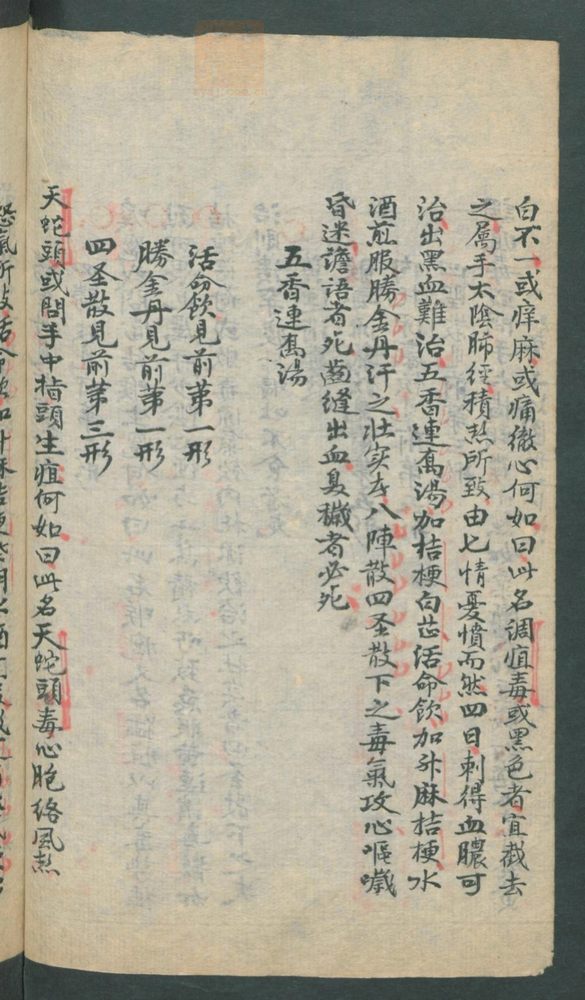 白不一或痒麻或痛徹心何如曰此名調疽毒或黑色者宜截去
之屬手太陰肺經積熱所致由七情憂憤而然四日刺得血膿可
治出黑血難治五香連翹湯加桔梗白芷活命飲加升麻桔梗水
酒煎服勝金丹汗之壯实者八陣散四圣散下之毒氣攻心嘔噦
昏迷譫語者死齒縫出血臭穢者必死
五香連翹湯
活命飲見前苐一形
勝金丹見前苐一形
四圣散見前苐三形
天蛇頭或問手中指頭生疽何如曰此名天蛇頭毒心胞絡風熱
怒氣所 活命飲加升麻桔梗